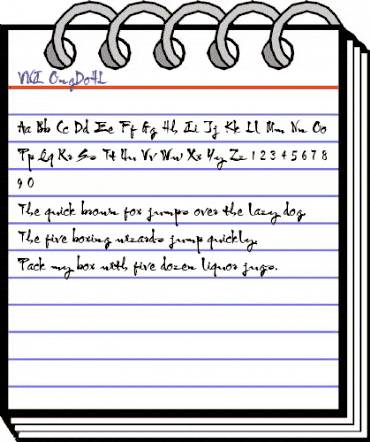 VNI Ong Do HL
Aa Bb Cc Dd Ee Ff Gg Hh Ii Jj Kk Ll Mm Nn Oo
Pp Qq Rr Ss Tt Uu Vv Ww Xx Yy Zz 1 2 3 4 5 6 7 8
9 0
The quick brown fox jumps over the lazy dog.
The five boxing wizards jump quickly.
Pack my box with five dozen liquor jugs.